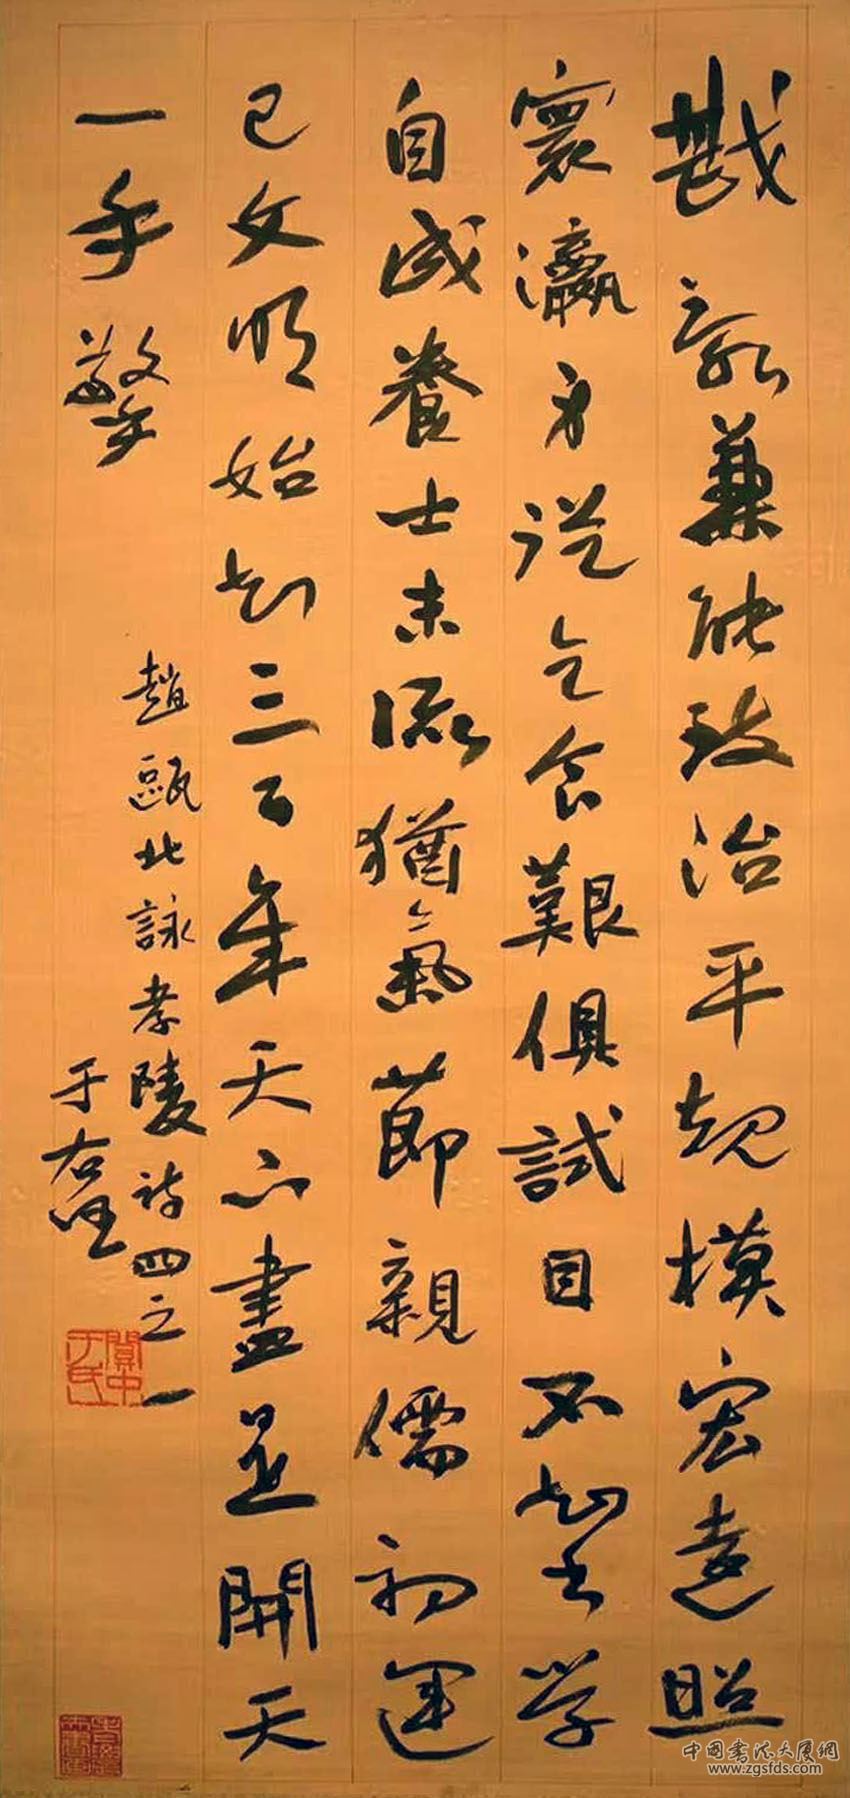 戡亂兼能致治平規模宏遠照
寰瀛身從乞食艱俱試目不知書學
自成養士末流猶氣節親儒初運
已文明始知三百年天下盡是開天
一手擎
趙甌北詠孝陵詩四之一
于右任
關中于氏
中國書法大厦網
www.zgsfds.com